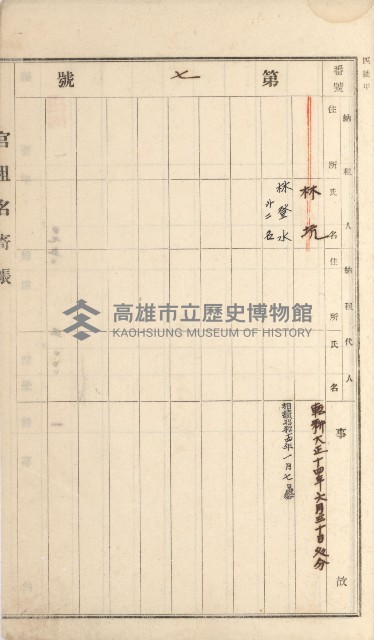 四號甲
番號
第七號
納租人
住所氏名
納租代人
住所氏名
事故
林坑
林登水
外二名
転郷大正十四年六月三十日処分
相續昭和五年一月七日
官租名寄帳
高雄市立歷史博物館
KAOHSIUNG MUSEUM OF HISTORY